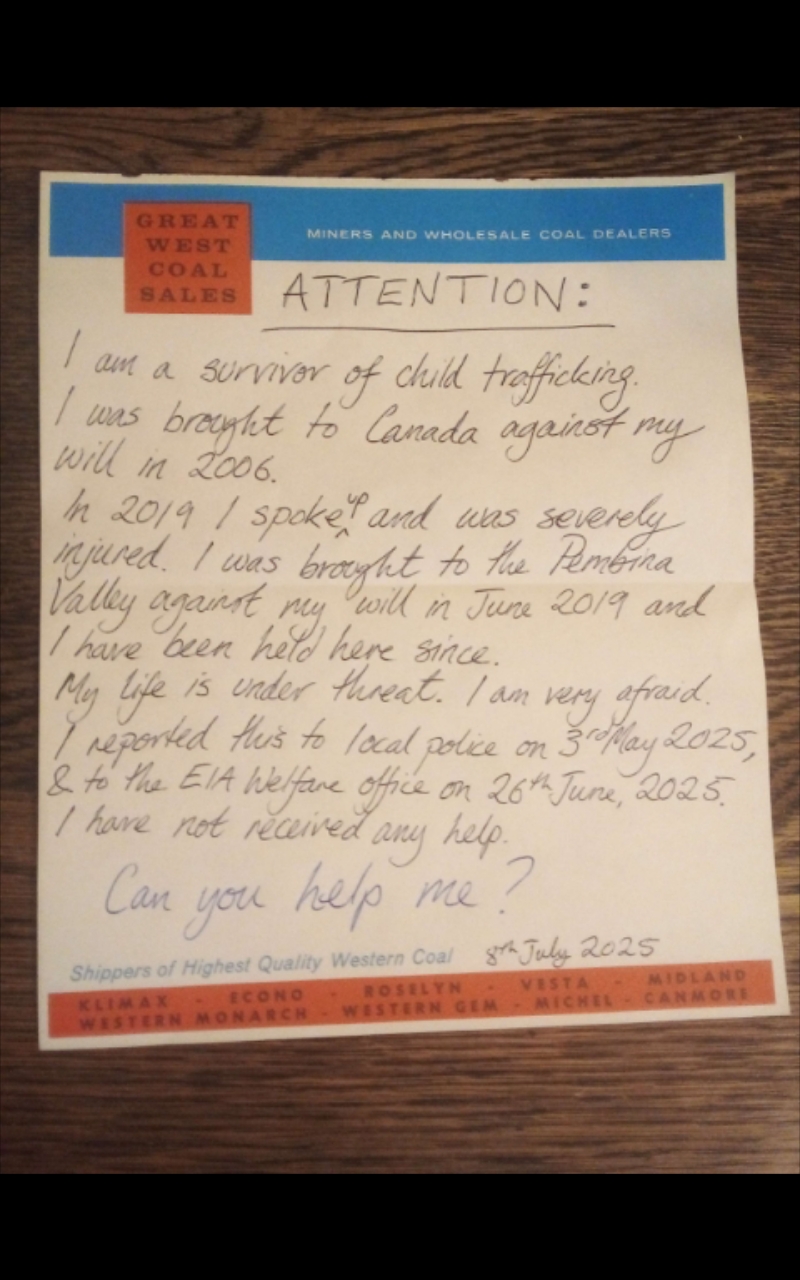 GREAT
WEST
COAL
SALES
MINERS AND WHOLESALE COAL DEALERS
ATTENTION:
I am a survivor of child trafficking.
I was brought to Canada against my
will in 2006.
In 2019 I spoke up and was severely
injured. I was brought to the Pembina
Valley against my will in June 2019 and
I have been held here since.
My life is under threat. I am very afraid.
I reported this to local police on 3rd May 2025,
& to the EIA Welfare office on 26th June, 2025.
I have not received any help.
Can you help me?
8th July 2025
Shippers of Highest Quality Western Coal
KLIMAX - ECONO - ROSELYN - VESTA - MIDLAND
WESTERN MONARCH - WESTERN GEM - MICHEL - CANMORE